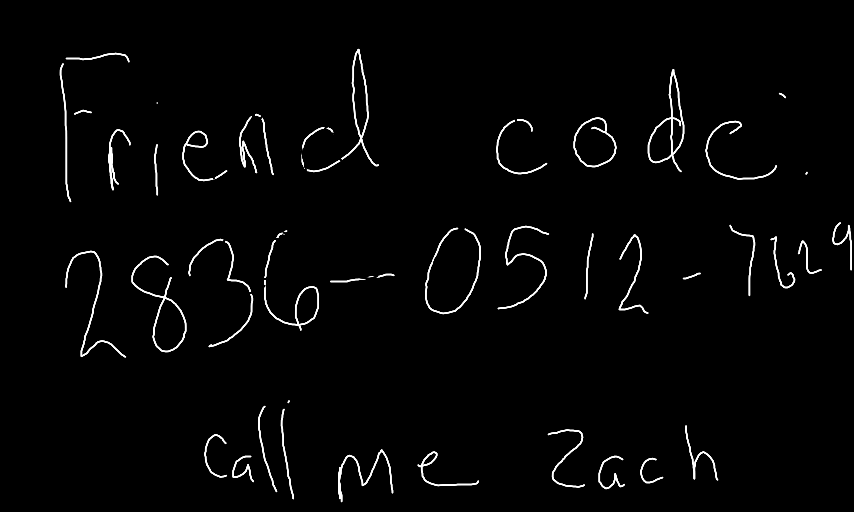 Friend code:
2836-0512-7629
call me Zach